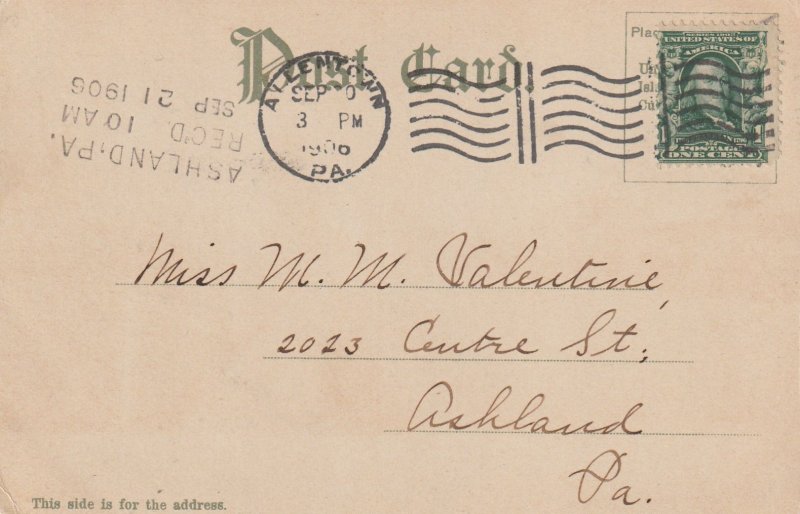 Post Card.
ASHLAND, PA.
REC'D. 10 AM
SEP 21 1906
ALLENTOWN
SEP 0
3 PM
1906
PA.
Plac
Un
Isl
Cu
SERIES 1902
UNITED STATES OF
AMERICA
POSTAGE
ONE CENT
Miss M. M. Valentine,
2023 Centre St.,
Ashland
Pa.
This side is for the address.